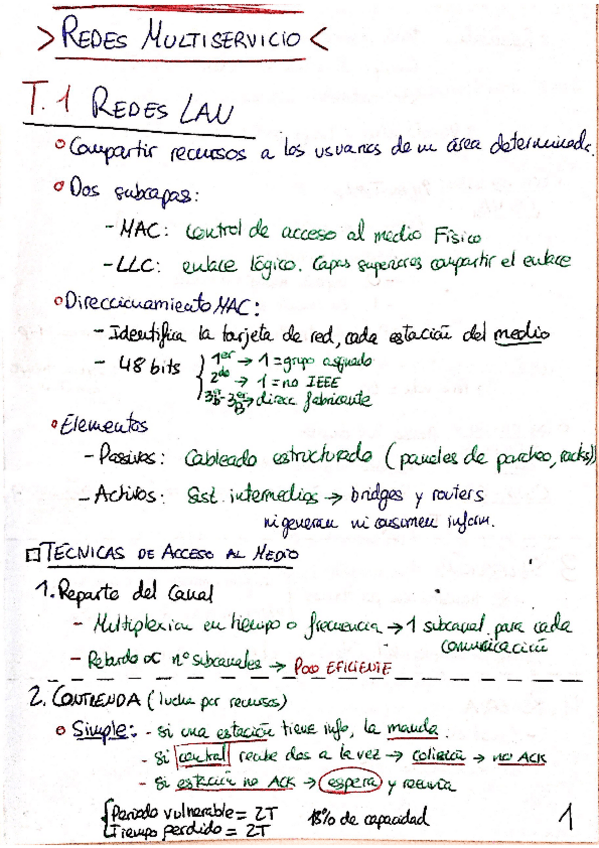 > REDES MULTISERVICIO <
T.1 REDES LAN
• Compartir recursos a los usuarios de un área determinada.
• Dos subcapas:
- MAC: control de acceso al medio Físico
- LLC: enlace lógico. Capas superiores compartir el enlace
• Direccionamiento MAC:
- Identifica la tarjeta de red, cada estación del medio
- 48 bits { 1er → 1 = grupo asignado
2do → 1 = no IEEE
3B-3B → direcc. fabricante
• Elementos
- Pasivos: Cableado estructurado (paneles de parcheo, racks)
- Activos: Sist. intermedios → bridges y routers
ni generan ni consumen inform.
□ TÉCNICAS DE ACCESO AL MEDIO
1. Reparto del Canal
- Multiplexion en tiempo o frecuencia → 1 subcanal para cada
comunicación
- Retardo ∝ nº subcanales → POCO EFICIENTE
2. CONTIENDA (lucha por recursos)
• Simple: - Si una estación tiene info, la manda.
- Si central recibe dos a la vez → colisión → no ACK
- Si estación no ACK → espera y reenvia
{ Periodo vulnerable = 2T 18% de capacidad
Tiempo perdido = 2T
1